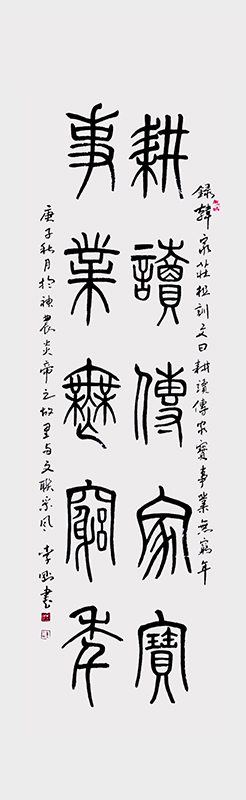 錄韓家莊祖訓文曰耕讀傳家寶事業無窮年
耕讀傳家寶
事業無窮年
庚子秋月於神農炎帝之故里与文联采风李刚書